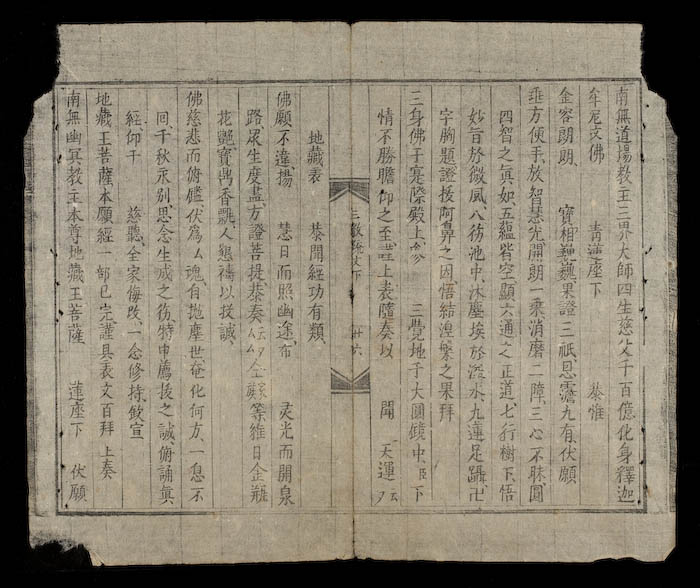 南無道塲教主三界大師四生慈父千百億化身釋迦
牟尼文佛 青蓮座下 恭惟
金容朗朗 寳相巍巍果證三祇恩霑九有伏願
垂方便手放智慧光開朗一乘消磨二障三心不昧圓
四智之眞如五蘊皆空顯六通之正道七行樹下悟
妙旨於微風八彷池中沐塵埃於潑水九蓮足躡卍
字胸題證拔阿鼻之因悟結湼槃之果拜
三身佛于寔際殿上參 三覺地于大圓鏡中臣下
情不勝瞻仰之至謹上表隨奏以 聞 天運
地藏表 恭聞經功有類
佛願不違揚 慧日而照幽途布 灵光而開泉
路眾生度盡方證菩提恭奏 仝願等維日金瓶
花艶寳鴨香飄人懇禱以投誠
佛慈悲而俯鑑伏爲厶魂自抛塵世奄化何方一息不
囬千秋永别思念生成之後特申薦拔之誠俯誦眞
經仰干 慈聽全家悔改一念修持敬宣
地藏王菩薩本願經一部已完謹具表文百拜上奏
南無幽冥教主本尊地藏王菩薩 蓮座下 伏願
三教 下 廿六